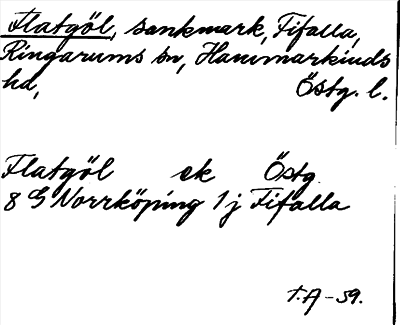 Flatgöl, sankmark, Fifalla,
Ringarums sn, Hammarkinds
hd, Östg. l.
Flatgöl ek Östg.
8 G Norrköping 1 j Fifalla
T.A -59.